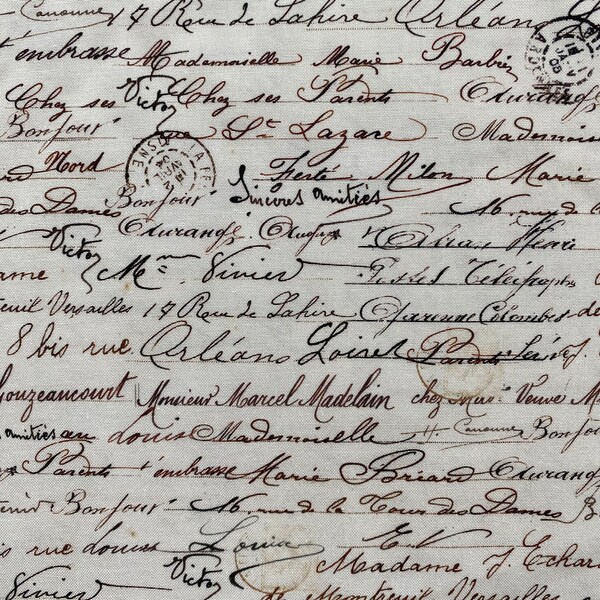 Canonne 17 Rue de Lahire Orléans
t'embrasse Mademoiselle Marie Barbier
Chez ses Victor Chez ses Parents
Bonjour rue St Lazare Mademoise
Nord AISNE LA FE Ferté Milon Marie
des Dames Bonjour Sincères amitiés 16 rue de la
Victor Henri
ame Mme Vivier Postes Télégraphes
reuil Versailles 17 Rue de Lahire Garenne Colombes de
8 bis rue Orléans Loiret Parents
Gouzeaucourt Monsieur Marcel Madelain chez Mme Veuve M
amitiés au Louis Mademoiselle H. Canonne Bonjour
Parents t'embrasse Marie Briard
Bonjour 16 rue de la Tour des Dames B
is rue Louis Louise E. V
Victor Madame J. Echar
Vivier Montreuil Versailles